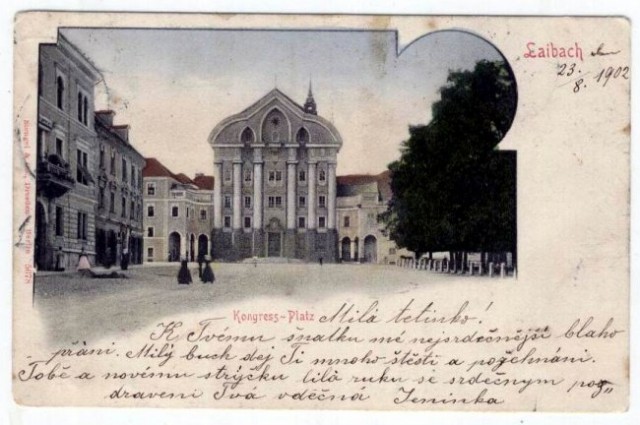 Laibach
23.
8. 1902
Kongress-Platz
Milá tetinko!
K Tvému sňatku mé nejsrdečnější blaho
přáni. Milý buch dej Ti mnoho štěsti a požehnani.
Tobě a novému strýčku libá ruku se srdečnym poz„
draveni Tvá vděčná Jeninka